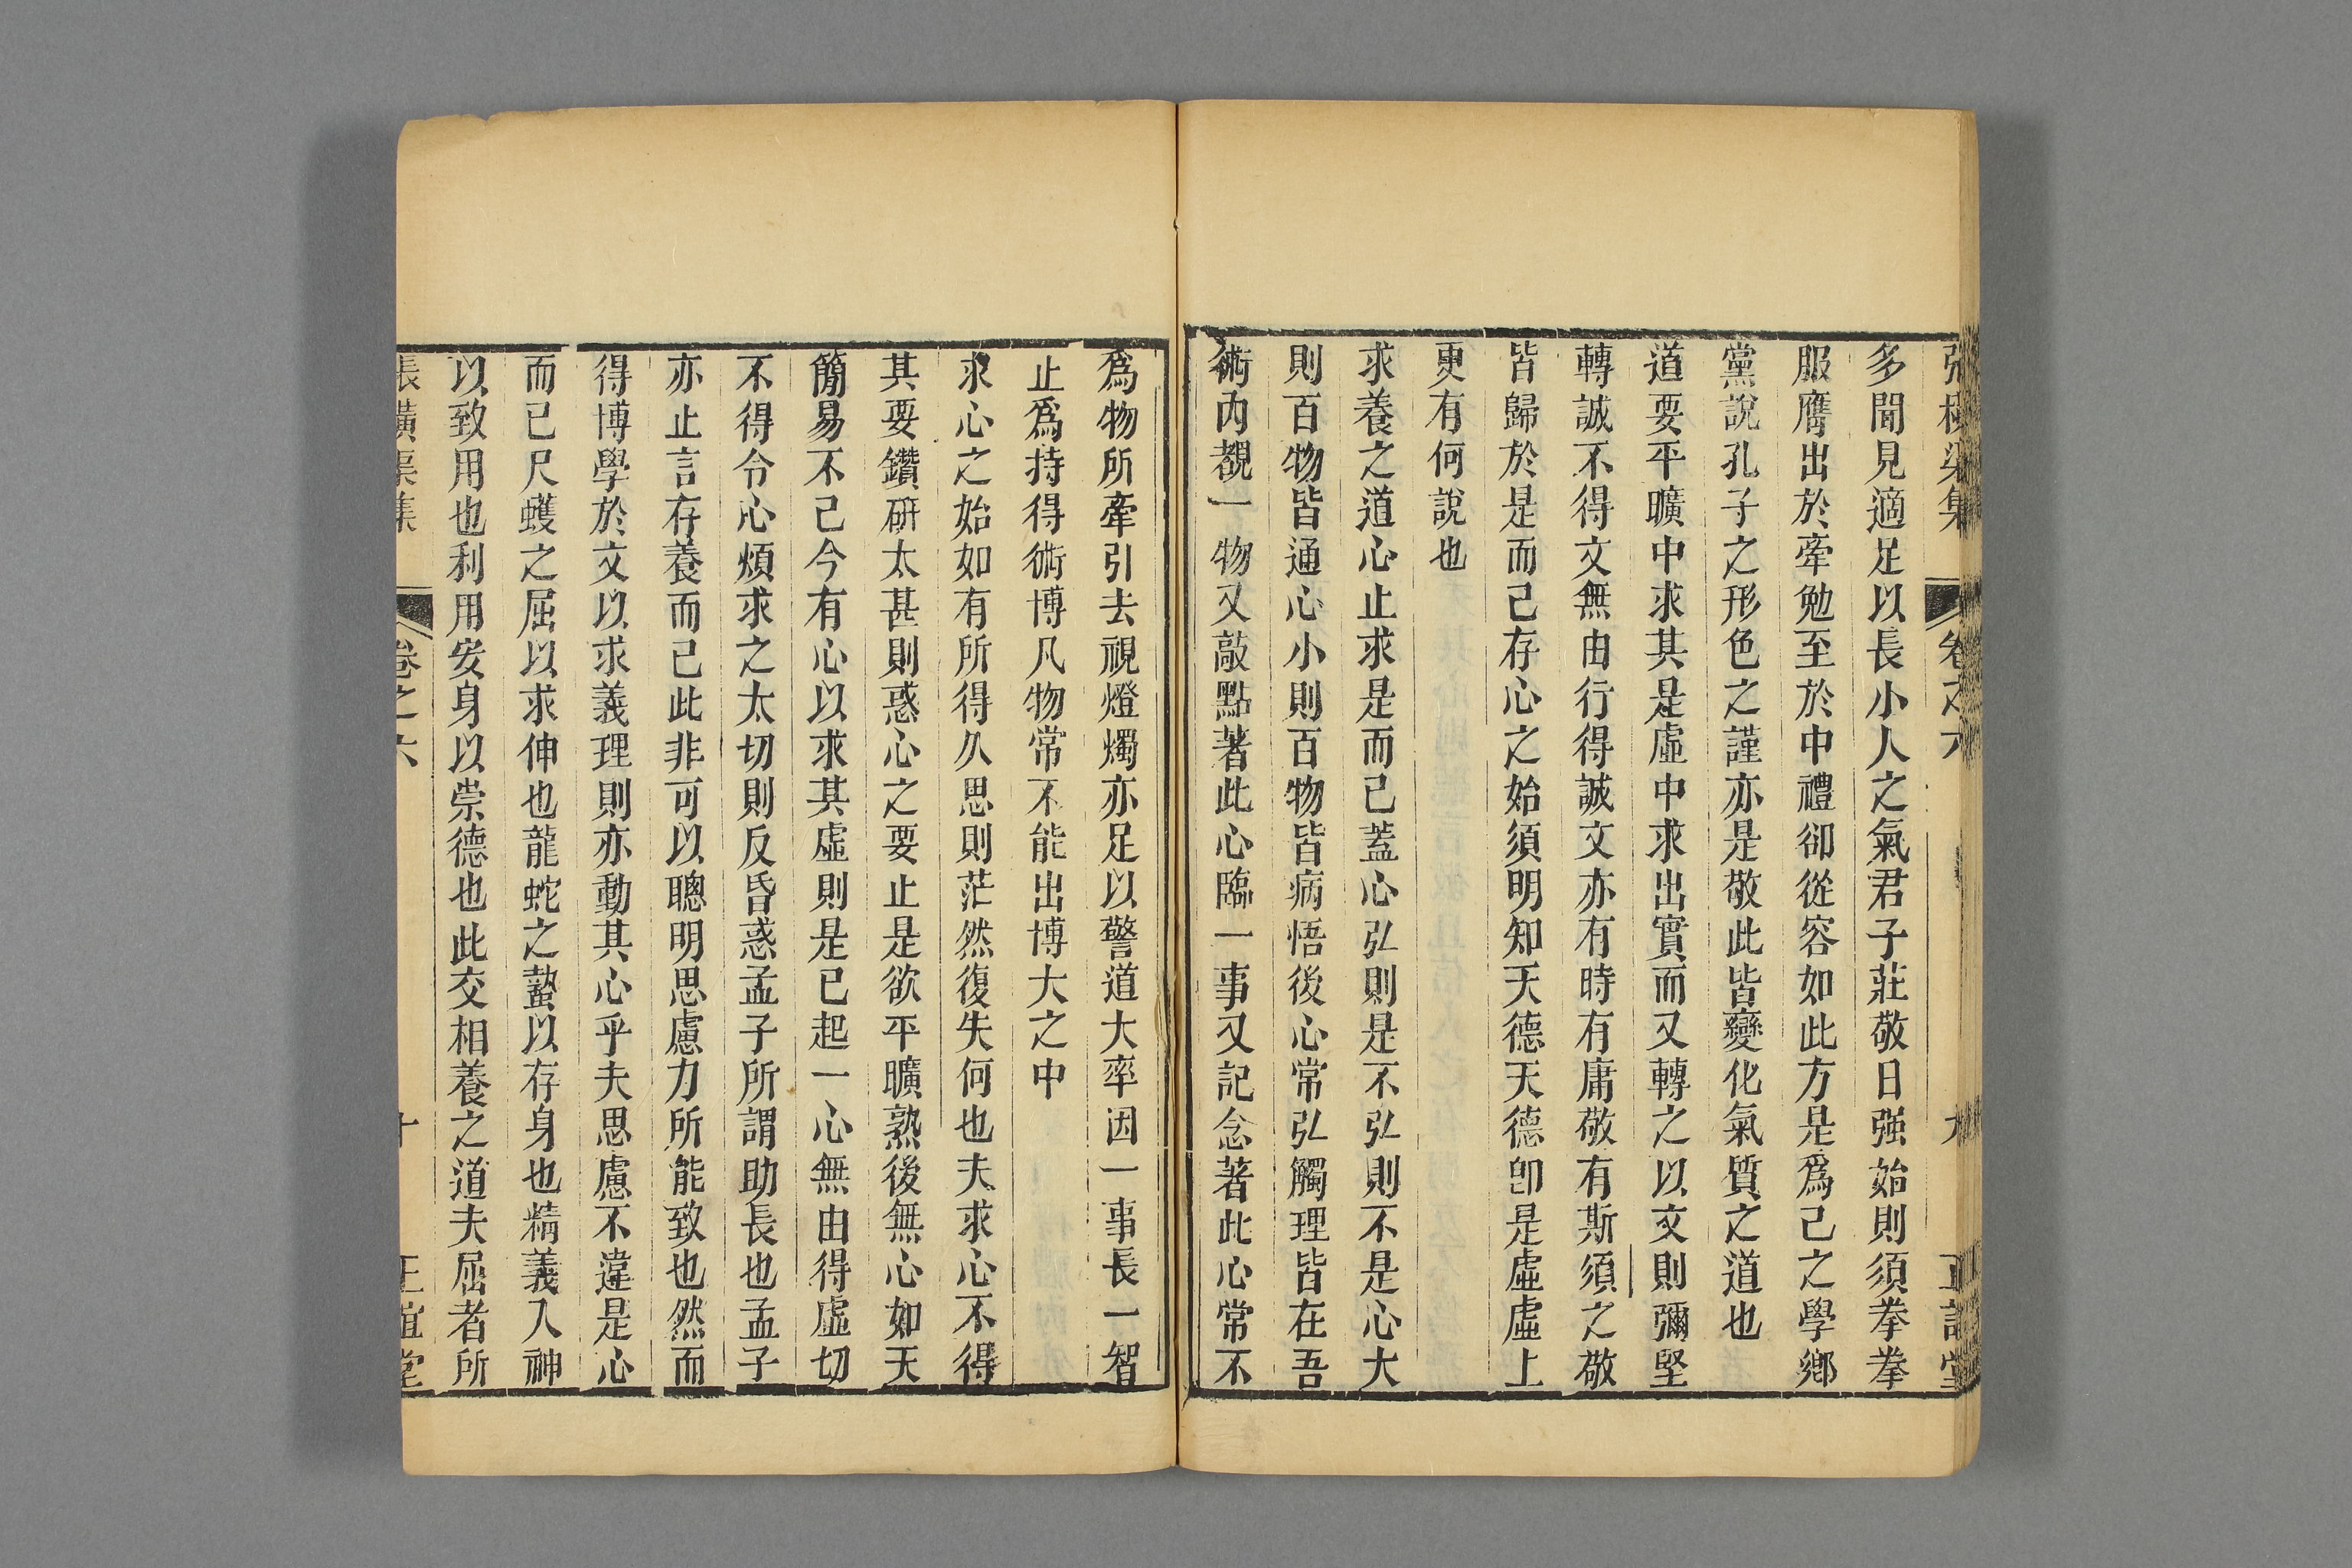 張橫渠集 卷之六 九 正誼堂
多聞見適足以長小人之氣君子莊敬日强始則須拳拳
服膺出於牽勉至於中禮卻從容如此方是爲己之學鄉
黨說孔子之形色之謹亦是敬此皆變化氣質之道也
道要平曠中求其是虛中求出實而又轉之以文則彌堅
轉誠不得文無由行得誠文亦有時有庸敬有斯須之敬
皆歸於是而已存心之始須明知天德天德卽是虛虛上
更有何說也
求養之道心止求是而已蓋心弘則是不弘則不是心大
則百物皆通心小則百物皆病悟後心常弘觸理皆在吾
術內覩一物又敲點著此心臨一事又記念著此心常不
爲物所牽引去視燈燭亦足以警道大率因一事長一智
止爲持得術博凡物常不能出博大之中
求心之始如有所得久思則茫然復失何也夫求心不得
其要鑽研太甚則惑心之要止是欲平曠熟後無心如天
簡易不已今有心以求其虛則是已起一心無由得虛切
不得令心煩求之太切則反昏惑孟子所謂助長也孟子
亦止言存養而已此非可以聰明思慮力所能致也然而
得博學於文以求義理則亦動其心乎夫思慮不違是心
而已尺蠖之屈以求伸也龍蛇之蟄以存身也精義入神
以致用也利用安身以崇德也此交相養之道夫屈者所
張橫渠集 卷之六 十 正誼堂